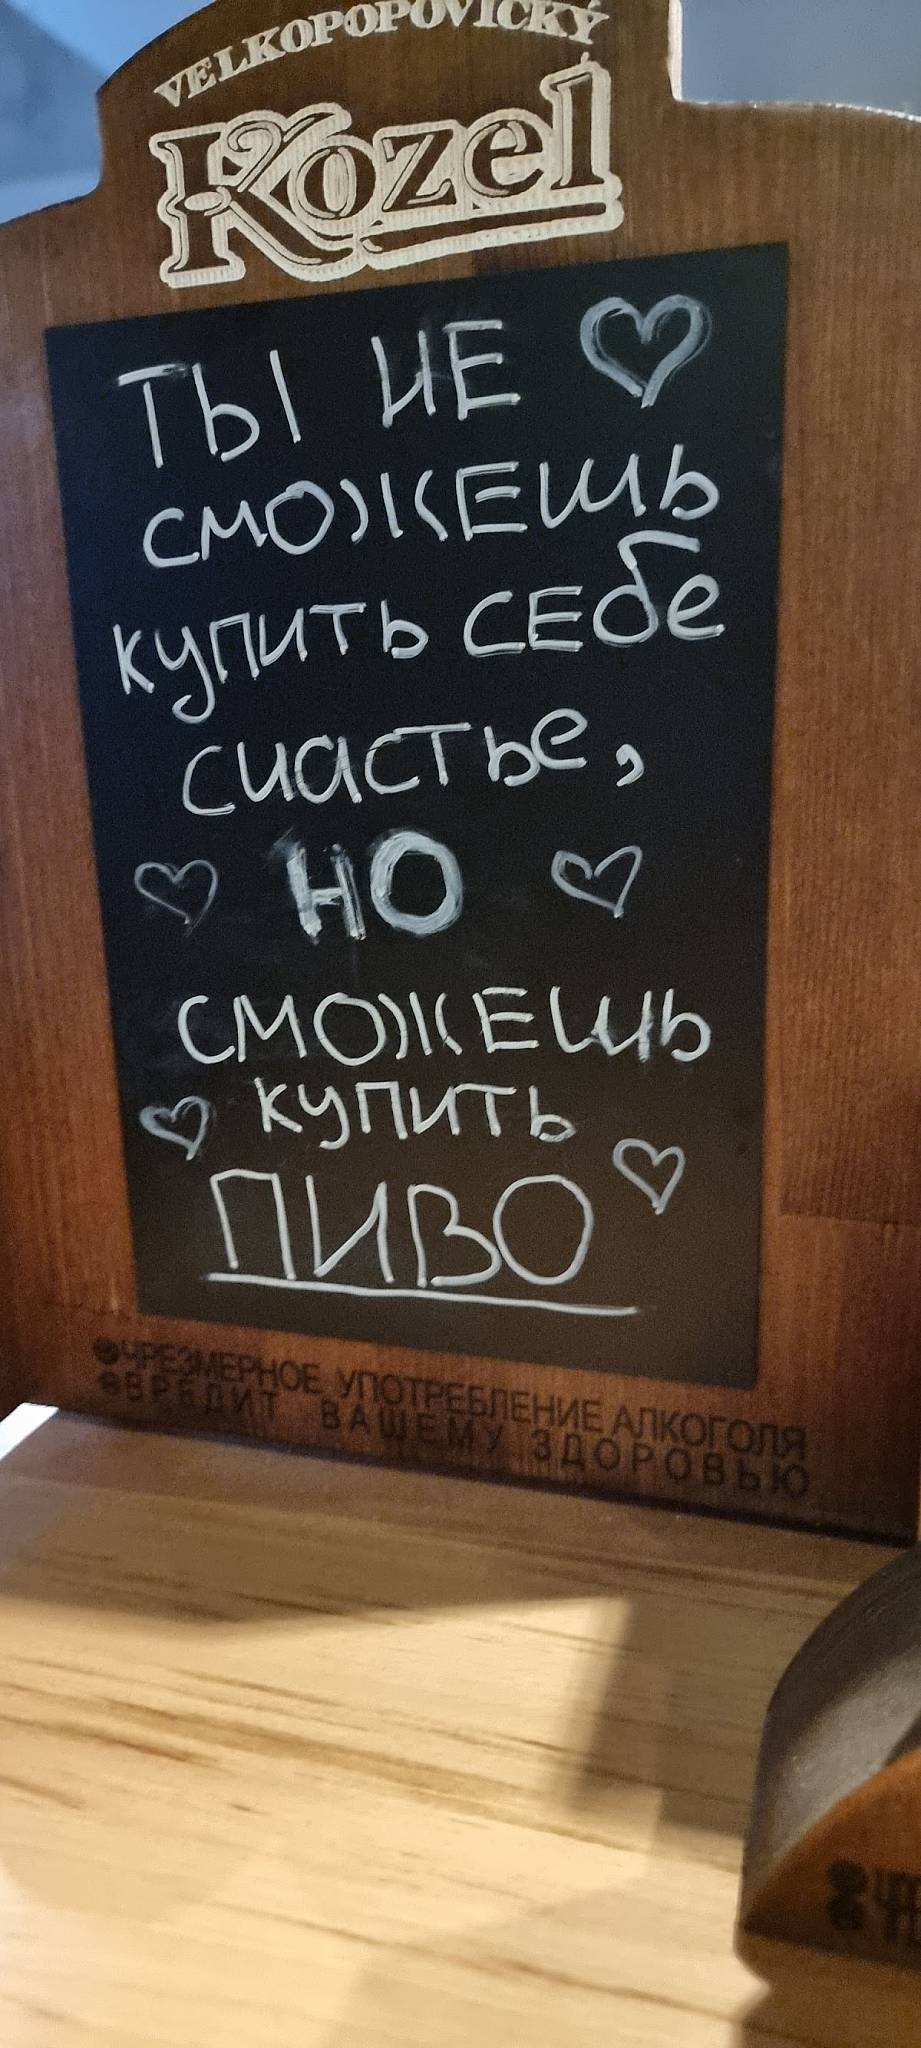 VELKOPOPOVICKÝ
Kozel
ТЫ НЕ
СМОЖЕШЬ
КУПИТЬ СЕБЕ
СЧАСТЬЕ,
НО
СМОЖЕШЬ
КУПИТЬ
ПИВО
ЧРЕЗМЕРНОЕ УПОТРЕБЛЕНИЕ АЛКОГОЛЯ
ВРЕДИТ ВАШЕМУ ЗДОРОВЬЮ